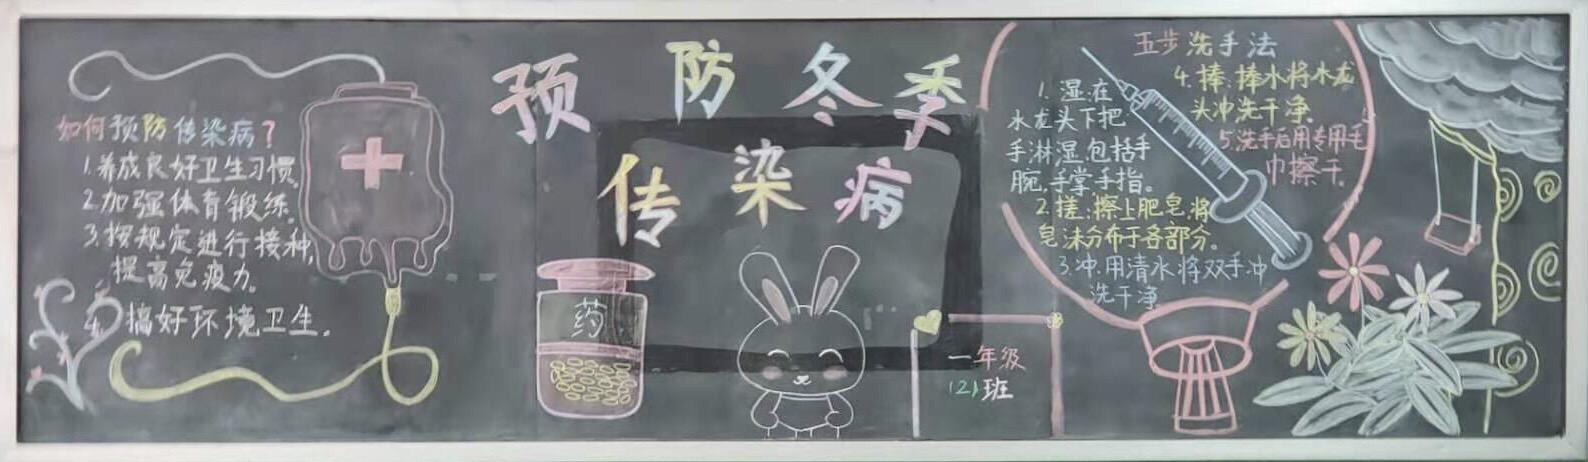 如何预防传染病?
1.养成良好卫生习惯。
2.加强体育锻练。
3.按规定进行接种,
提高免疫力。
4.搞好环境卫生。
预防冬季
传染病
药
一年级
(2)班
五步洗手法
1.湿:在
水龙头下把
手淋湿,包括手
腕,手掌,手指。
2.搓:擦上肥皂,将
皂沫分布于各部分。
3.冲:用清水将双手冲
洗干净
4.捧:捧水将水龙
头冲洗干净.
5.洗手后用专用毛
巾擦干.